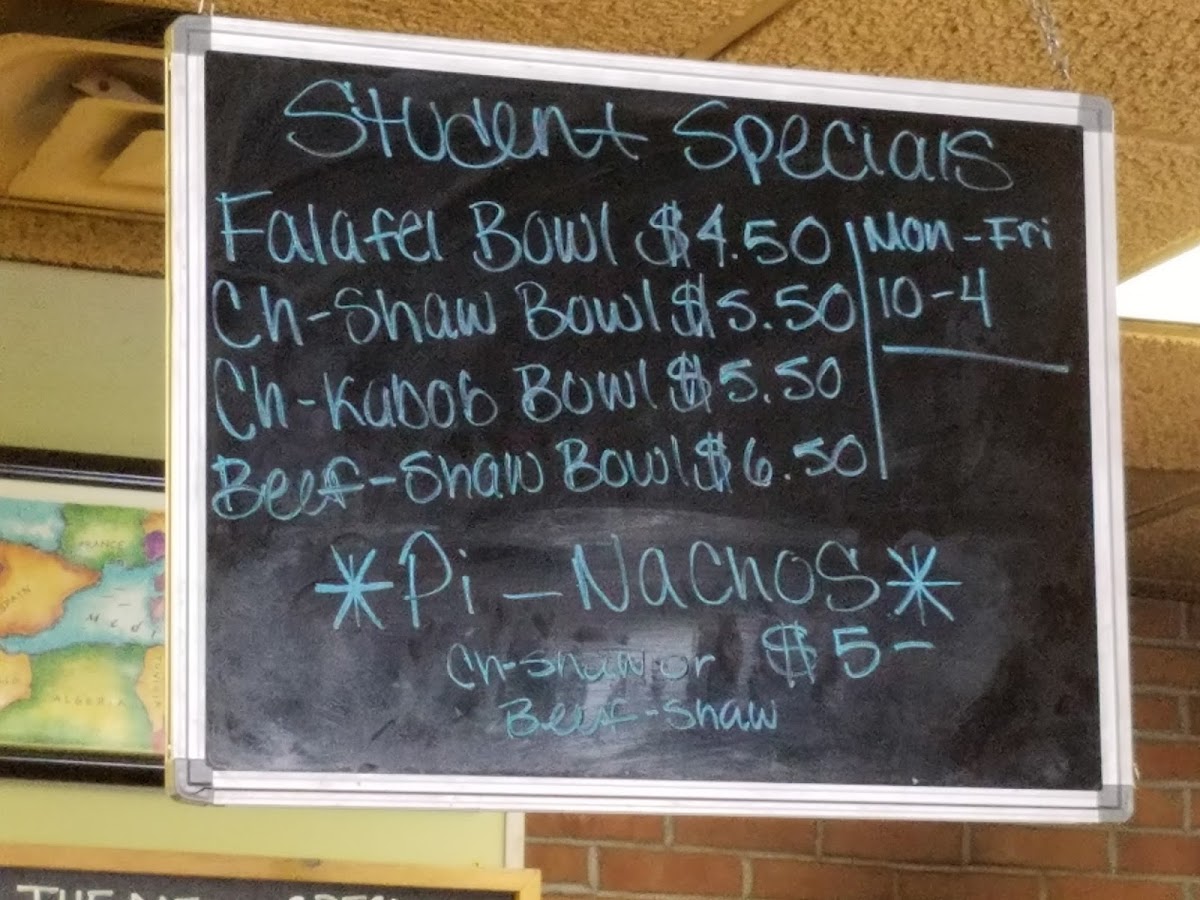 Student Specials
Falafel Bowl $4.50
Ch-Shaw Bowl $5.50
Ch-Kabob Bowl $5.50
Beef-Shaw Bowl $6.50
Mon-Fri
10-4
*Pi-Nachos*
Ch-shaw or $5-
Beef-shaw
FRANCE
SPAIN
Medi
ALGERIA